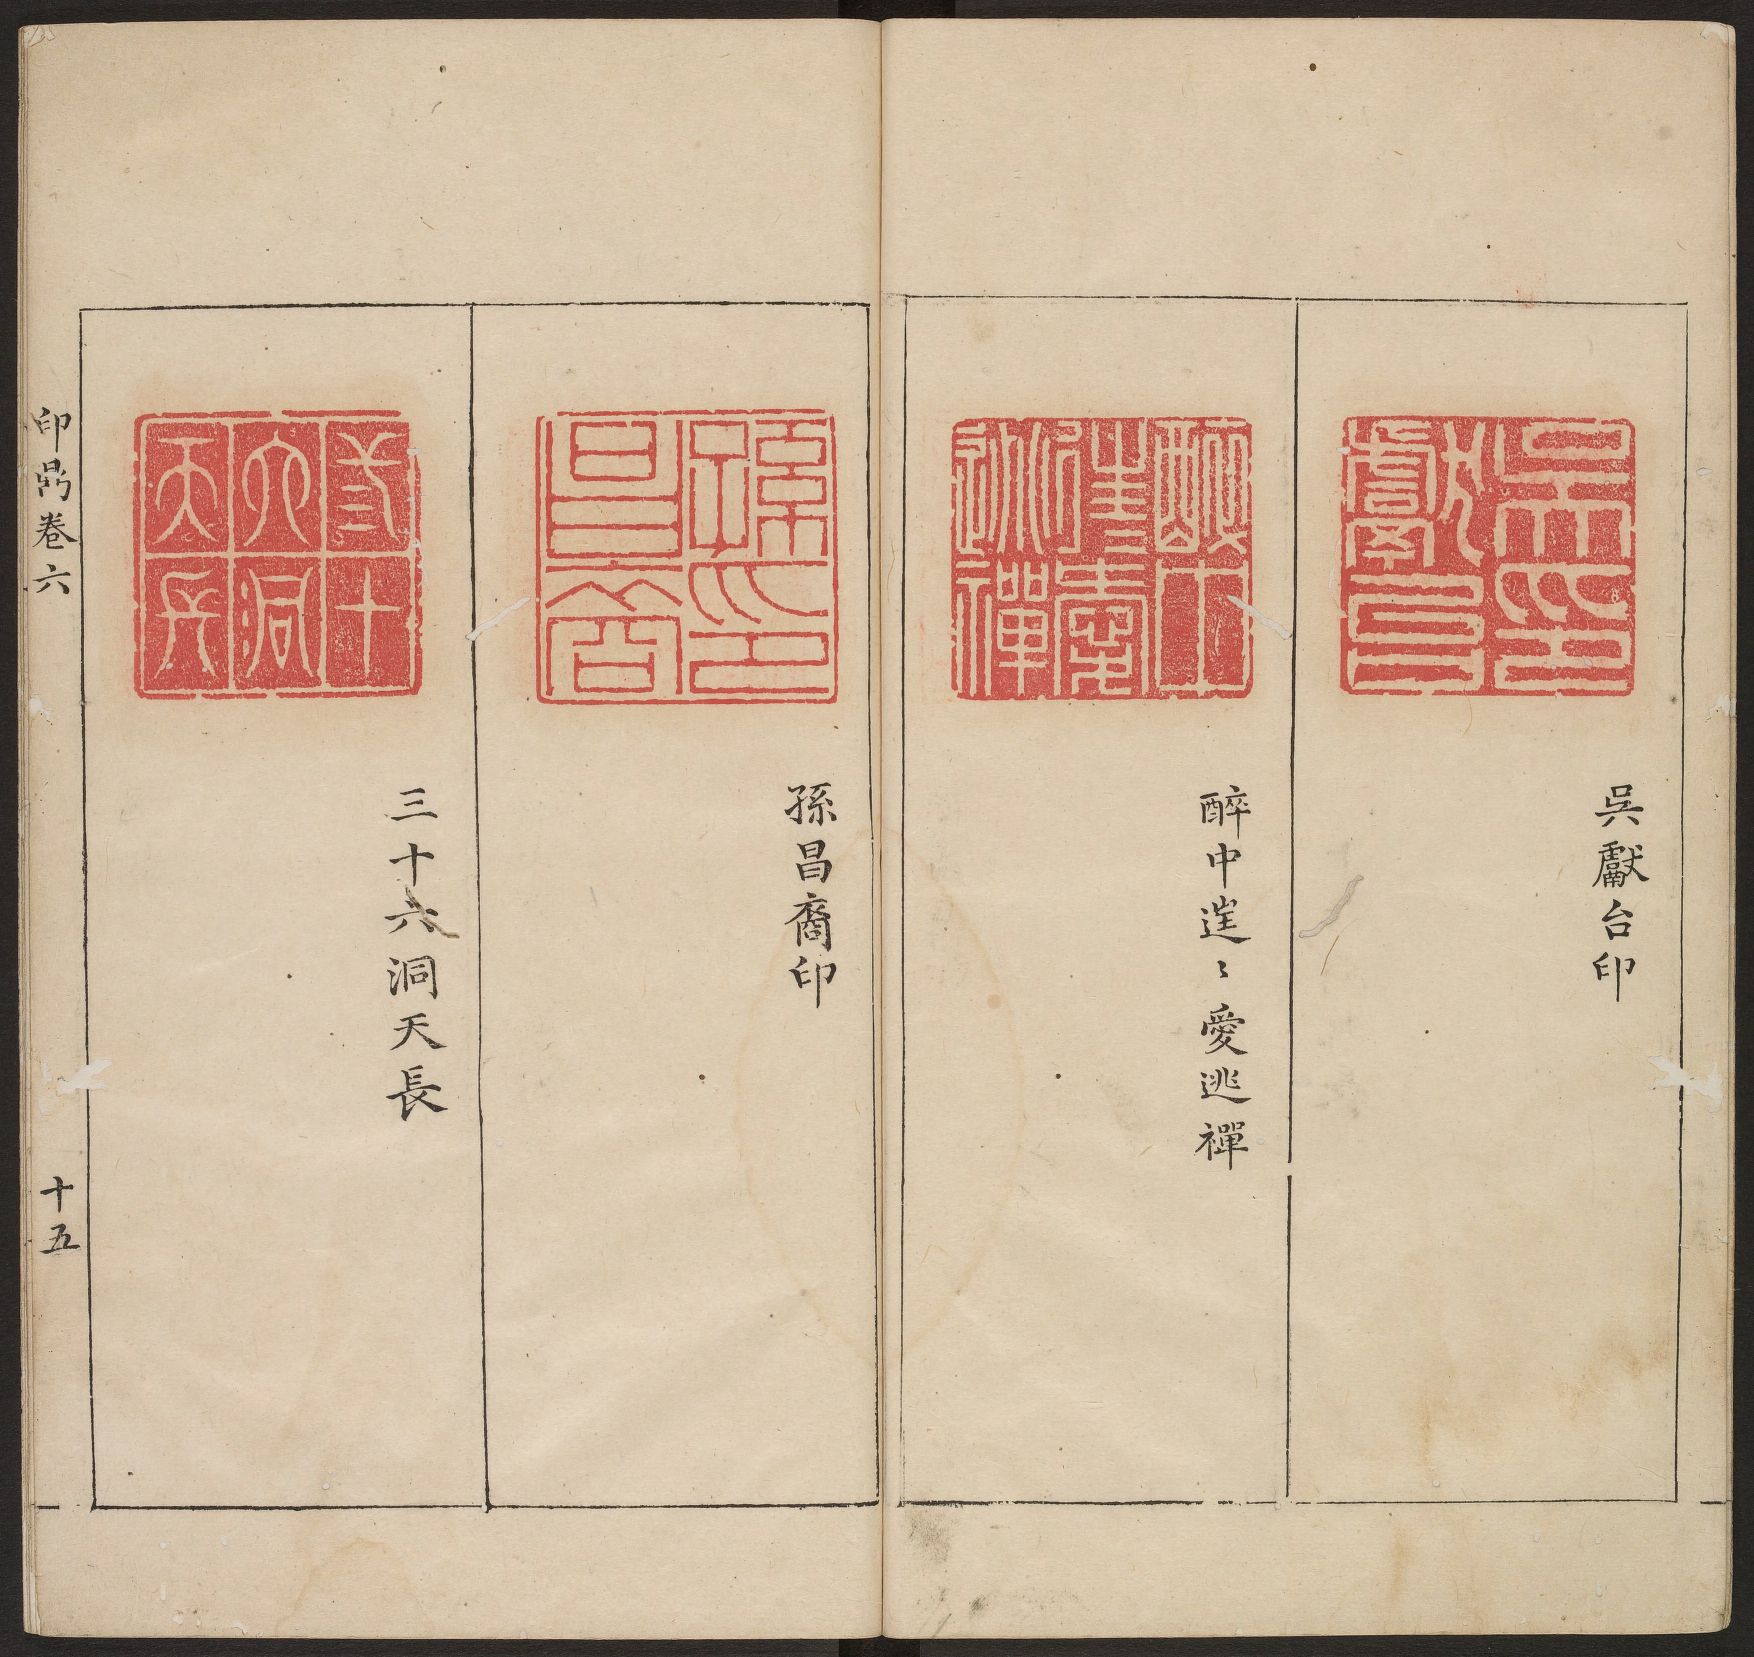 吳獻台印
醉中𨓹〻愛逃禪
孫昌裔印
三十六洞天長
印鼎卷六
十五